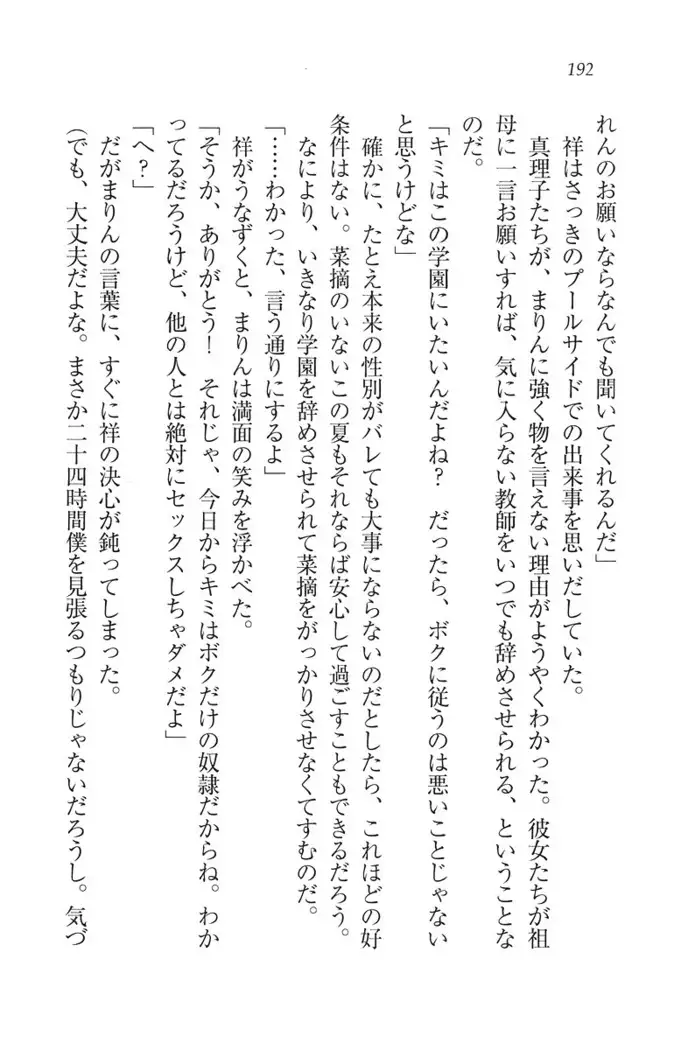 192
れんのお願いならなんでも聞いてくれるんだ」
　祥はさっきのプールサイドでの出来事を思いだしていた。
　真理子たちが、まりんに強く物を言えない理由がようやくわかった。彼女たちが祖
母に一言お願いすれば、気に入らない教師をいつでも辞めさせられる、ということな
のだ。
「キミはこの学園にいたいんだよね？　だったら、ボクに従うのは悪いことじゃない
と思うけどな」
　確かに、たとえ本来の性別がバレても大事にならないのだとしたら、これほどの好
条件はない。菜摘のいないこの夏もそれならば安心して過ごすこともできるだろう。
　なにより、いきなり学園を辞めさせられて菜摘をがっかりさせなくてすむのだ。
「……わかった、言う通りにするよ」
　祥がうなずくと、まりんは満面の笑みを浮かべた。
「そうか、ありがとう！　それじゃ、今日からキミはボクだけの奴隷だからね。わか
ってるだろうけど、他の人とは絶対にセックスしちゃダメだよ」
「へ？」
　だがまりんの言葉に、すぐに祥の決心が鈍ってしまった。
（でも、大丈夫だよな。まさか二十四時間僕を見張るつもりじゃないだろうし。気づ